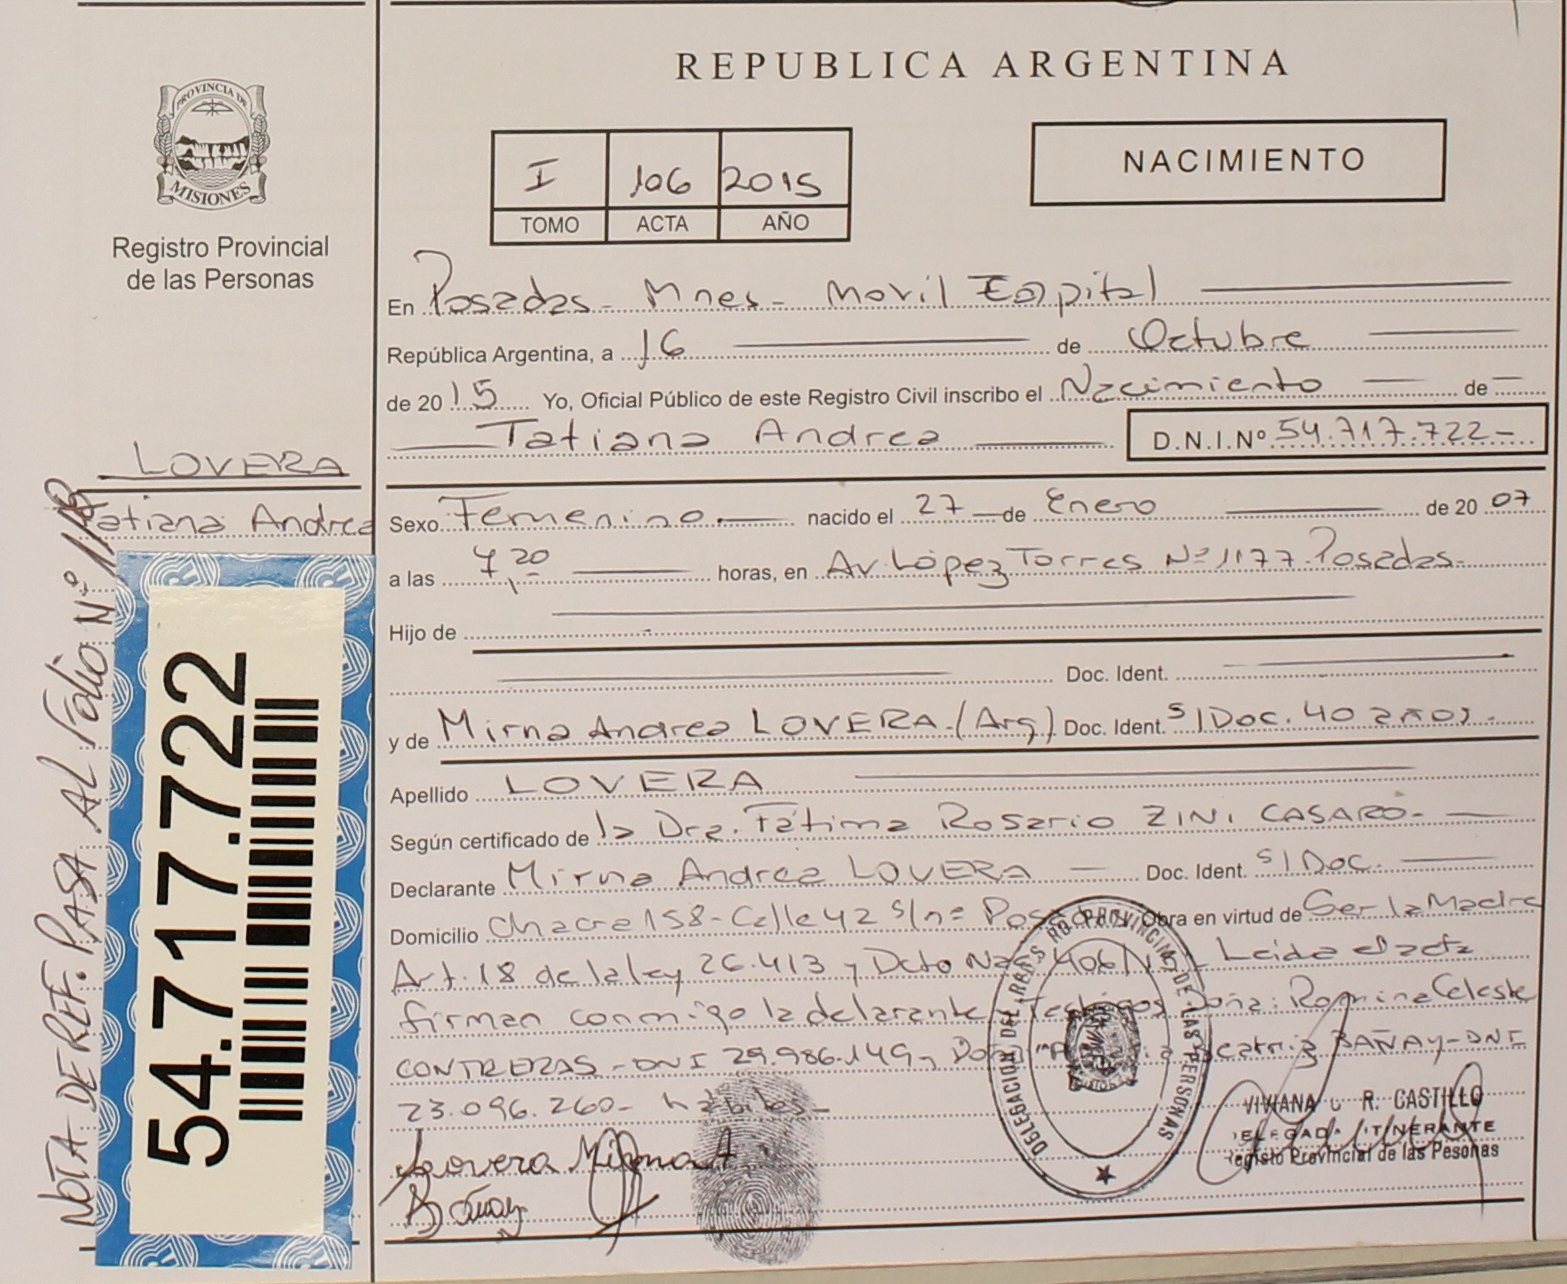 REPUBLICA ARGENTINA
PROVINCIA DE
MISIONES
Registro Provincial
de las Personas
I 106 2015
TOMO ACTA AÑO
NACIMIENTO
En Posadas - Mnes - Movil Capital
República Argentina, a 16 de Octubre
de 2015 Yo, Oficial Público de este Registro Civil inscribo el Nacimiento de
Tatiana Andrea D.N.I.Nº 54.717.722-
LOVERA
Tatiana Andrea
Sexo Femenino. nacido el 27 de Enero de 2007
a las 7,20 horas, en Av. López Torres Nº 1177. Posadas.
Hijo de
Doc. Ident.
y de Mirna Andrea LOVERA. (Arg.) Doc. Ident. S/Doc. 40 años.
Apellido LOVERA
Según certificado de la Dra. Fátima Rosario ZINI CASARO.
Declarante Mirna Andrea LOVERA Doc. Ident. S/Doc.
Domicilio Chacra 158 - Calle 42 s/nº Posadas Obra en virtud de Ser la Madre
Art. 18 de la ley 26.413 y Dcto Nac. 406/ Leida el acta
firman conmigo la declarante, Testigos Doña: Romina Celeste
CONTRERAS - DNI 29.986.149, Doña Beatriz BAÑAY - DNI
23.096.260 - hábiles -
Lovera Mirna A
Bañay
DELEGACION DEL REG. PROVINCIAL DE LAS PERSONAS
VIVIANA R. CASTILLO
DELEGADA ITINERANTE
Registo Provincial de las Pesonas
54.717.722
NOTA DE REF. PASA AL Folio Nº 118